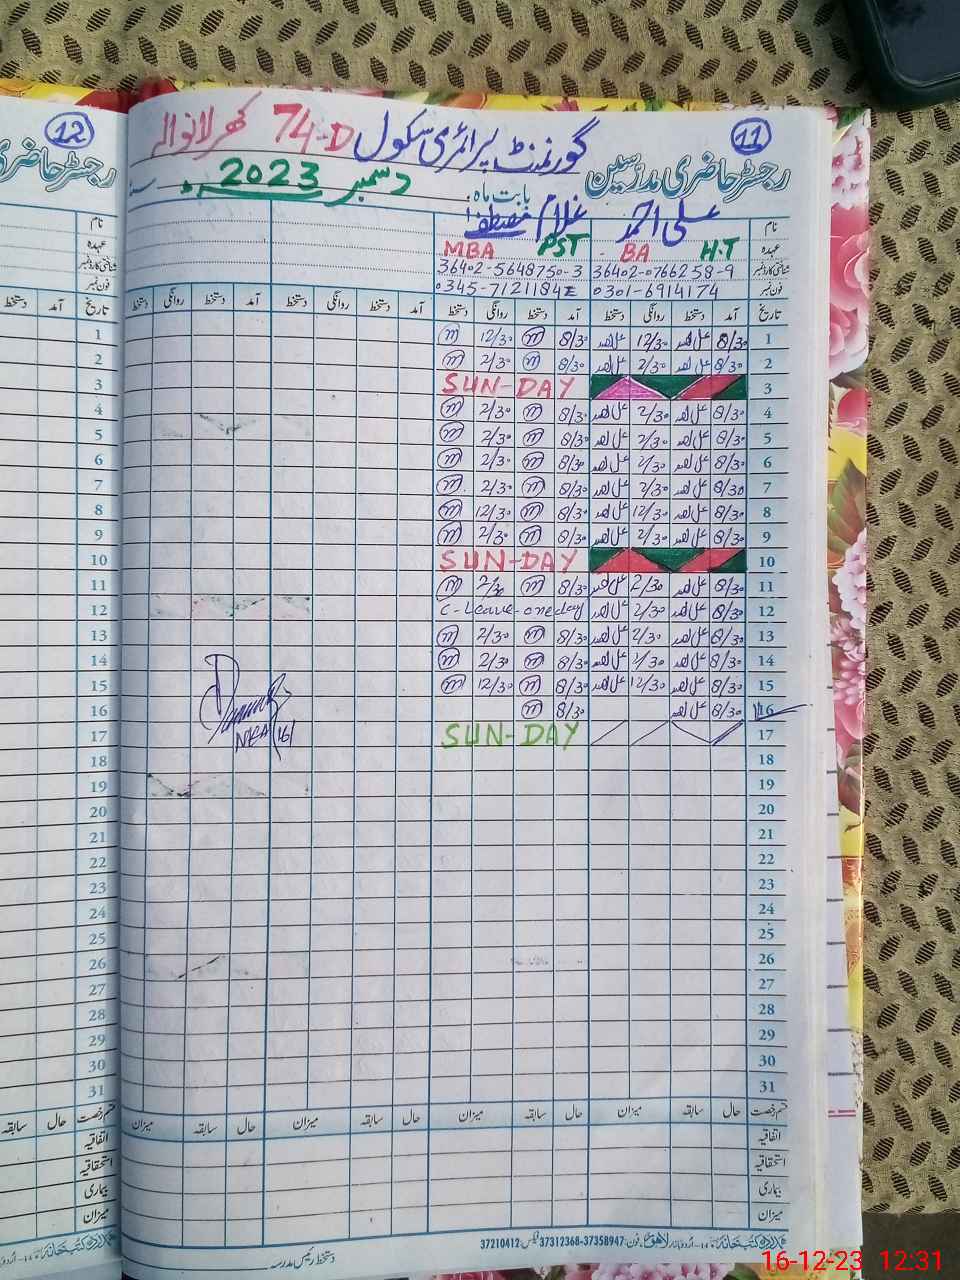 12
11
رجسٹر حاضری مدرسین
گورنمنٹ پرائمری سکول 74-D
بابت ماہ دسمبر 2023
نام علی احمد غلام مصطفےٰ
عہدہ H.T BA PST MBA
شناختی کارڈ نمبر 36402-0766258-9 36402-5648750-3
فون نمبر 0301-6914174 0345-7121184
تاریخ آمد دستخط روانگی دستخط آمد دستخط روانگی دستخط آمد دستخط روانگی دستخط آمد دستخط روانگی دستخط
1 8/30 علی احمد 12/30 علی احمد 8/30 m 12/30 m
2 8/30 علی احمد 2/30 علی احمد 8/30 m 2/30 m
3 SUN-DAY
4 8/30 علی احمد 2/30 علی احمد 8/30 m 2/30 m
5 8/30 علی احمد 2/30 علی احمد 8/30 m 2/30 m
6 8/30 علی احمد 2/30 علی احمد 8/30 m 2/30 m
7 8/30 علی احمد 2/30 علی احمد 8/30 m 2/30 m
8 8/30 علی احمد 12/30 علی احمد 8/30 m 12/30 m
9 8/30 علی احمد 2/30 علی احمد 8/30 m 2/30 m
10 SUN-DAY
11 8/30 علی احمد 2/30 علی احمد 8/30 m 2/30 m
12 8/30 علی احمد 2/30 علی احمد C-Leave-one day
13 8/30 علی احمد 2/30 علی احمد 8/30 m 2/30 m
14 8/30 علی احمد 2/30 علی احمد 8/30 m 2/30 m
15 8/30 علی احمد 12/30 علی احمد 8/30 m 12/30 m
16 8/30 علی احمد 8/30 m
17 SUN-DAY
18
19
20
21
22
23
24
25
26
27
28
29
30
31
قسم رخصت حال سابقہ میزان حال سابقہ میزان حال سابقہ میزان حال سابقہ میزان
اتفاقیہ
استحقاقیہ
بیماری
میزان
دستخط رئیس مدرسہ
فون: 37358947-37312368 فیکس: 37210412
16-12-23 12:31